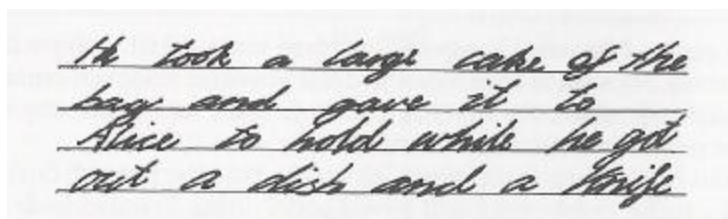 He took a large cake of the
bag and gave it to
Alice to hold while he got
out a dish and a knife